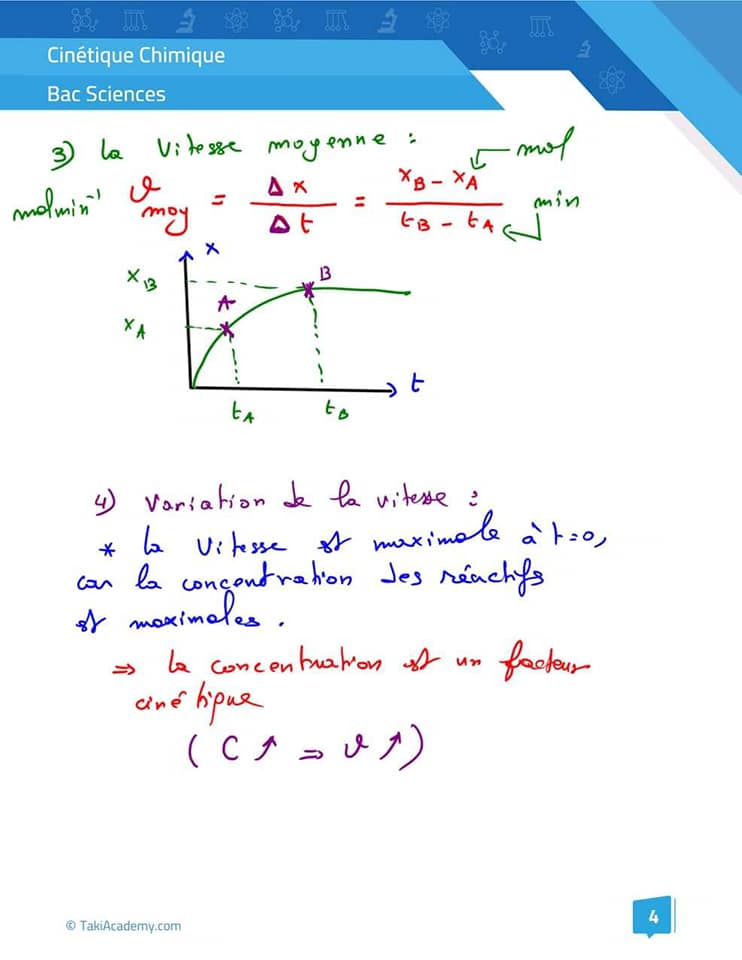 Cinétique Chimique
Bac Sciences
3) la vitesse moyenne :
mol
molmin⁻¹ v moy = Δx / Δt = xB - xA / tB - tA
min
x
xB
B
A
xA
t
tA
tB
4) Variation de la vitesse :
* la vitesse est maximale à t=0,
car la concentration des réactifs
est maximales.
⇒ la concentration est un facteur
cinétique
( C ↗ ⇒ v ↗ )
© TakiAcademy.com
4